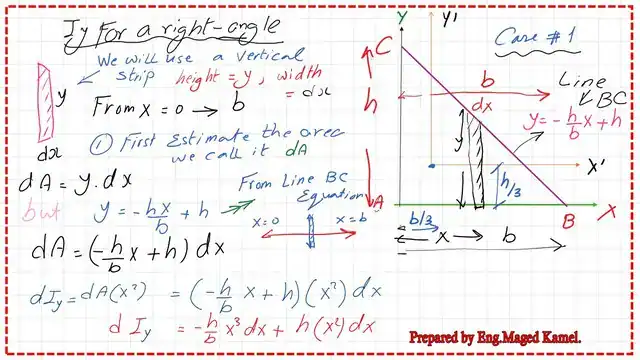 Iy For a right-angle
We will use a vertical
strip height = y, width
= dx
From x = 0 → b
y
dx
① First Estimate the area
we call it dA
dA = y.dx
but y = -hx/b + h
From Line BC
Equation
x=0 x=b
dA = (-h/b x + h) dx
dIy = dA(x²) = (-h/b x + h)(x²) dx
d Iy = -h/b x³ dx + h(x²) dx
Y
Y'
Case #1
C
h
A
b
dx
Line
BC
y = -h/b x + h
y
X'
h/3
B
X
b/3
x
b
Prepared by Eng.Maged Kamel.